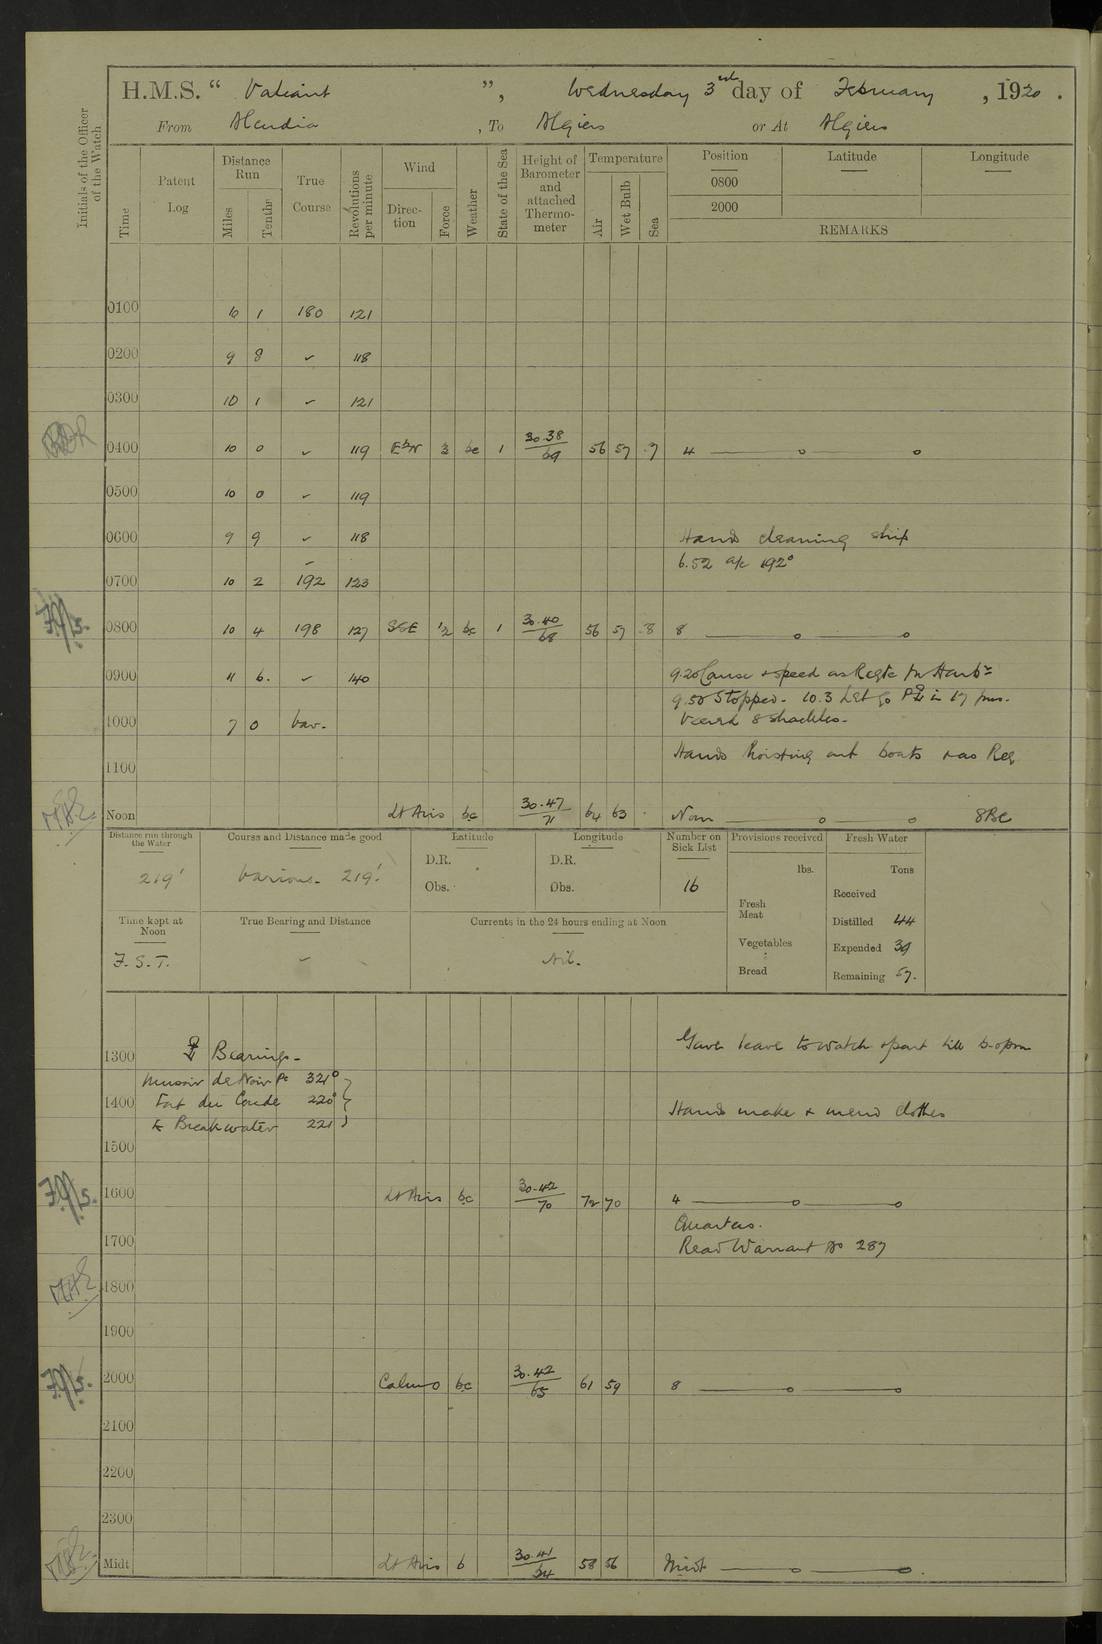 H.M.S. “ Valiant ”, Wednesday 3rd day of February , 1920 .
From Alcudia , To Algiers or At Algiers
Initials of the Officer of the Watch
Time
Patent Log
Distance Run
Miles Tenths
True Course
Revolutions per minute
Wind
Direction Force
Weather
State of the Sea
Height of Barometer and attached Thermometer
Temperature
Air Wet Bulb Sea
Position Latitude Longitude
0800
2000
REMARKS
0100 10 1 180 121
0200 9 8 ✓ 118
0300 10 1 ✓ 121
0400 10 0 ✓ 119 EbN 3 bc 1 30.38/69 56 57 4
0500 10 0 ✓ 119
0600 9 9 ✓ 118 Hands cleaning ship
6.52 a/c 192°
0700 10 2 192 123
0800 10 4 198 127 SSE 1/2 bc 1 30.40/68 56 57 8
0900 11 6. ✓ 140 9.20 Course & speed as Reqte for Harbr
9.50 Stopped. 10.3 Let go in 17 fms.
1000 7 0 var. Veered 8 shackles.
Hands hoisting out boats & as Req
1100
Noon Lt Airs bc 30.47/71 64 63 Noon
Distance run through the Water
219'
Course and Distance made good
Various. 219'.
Latitude
D.R.
Obs.
Longitude
D.R.
Obs.
Number on Sick List
16
Provisions received
lbs.
Fresh Meat
Vegetables
Bread
Fresh Water
Tons
Received
Distilled 44
Expended 39
Remaining 57.
Time kept at Noon
Z.S.T.
True Bearing and Distance
Currents in the 24 hours ending at Noon
Nil.
1300 Bearings. Gave leave to watch & part till
Pt 321°
1400 Fort du Coude 220° Hands make & mend clothes
Breakwater 221
1500
1600 Lt Airs bc 30.42/70 72 70 4
Quarters.
1700 Read Warrant No 287
1800
1900
2000 Calm 0 bc 30.42/65 61 59 8
2100
2200
2300
Midt Lt Airs b 30.41/64 58 56 Midt